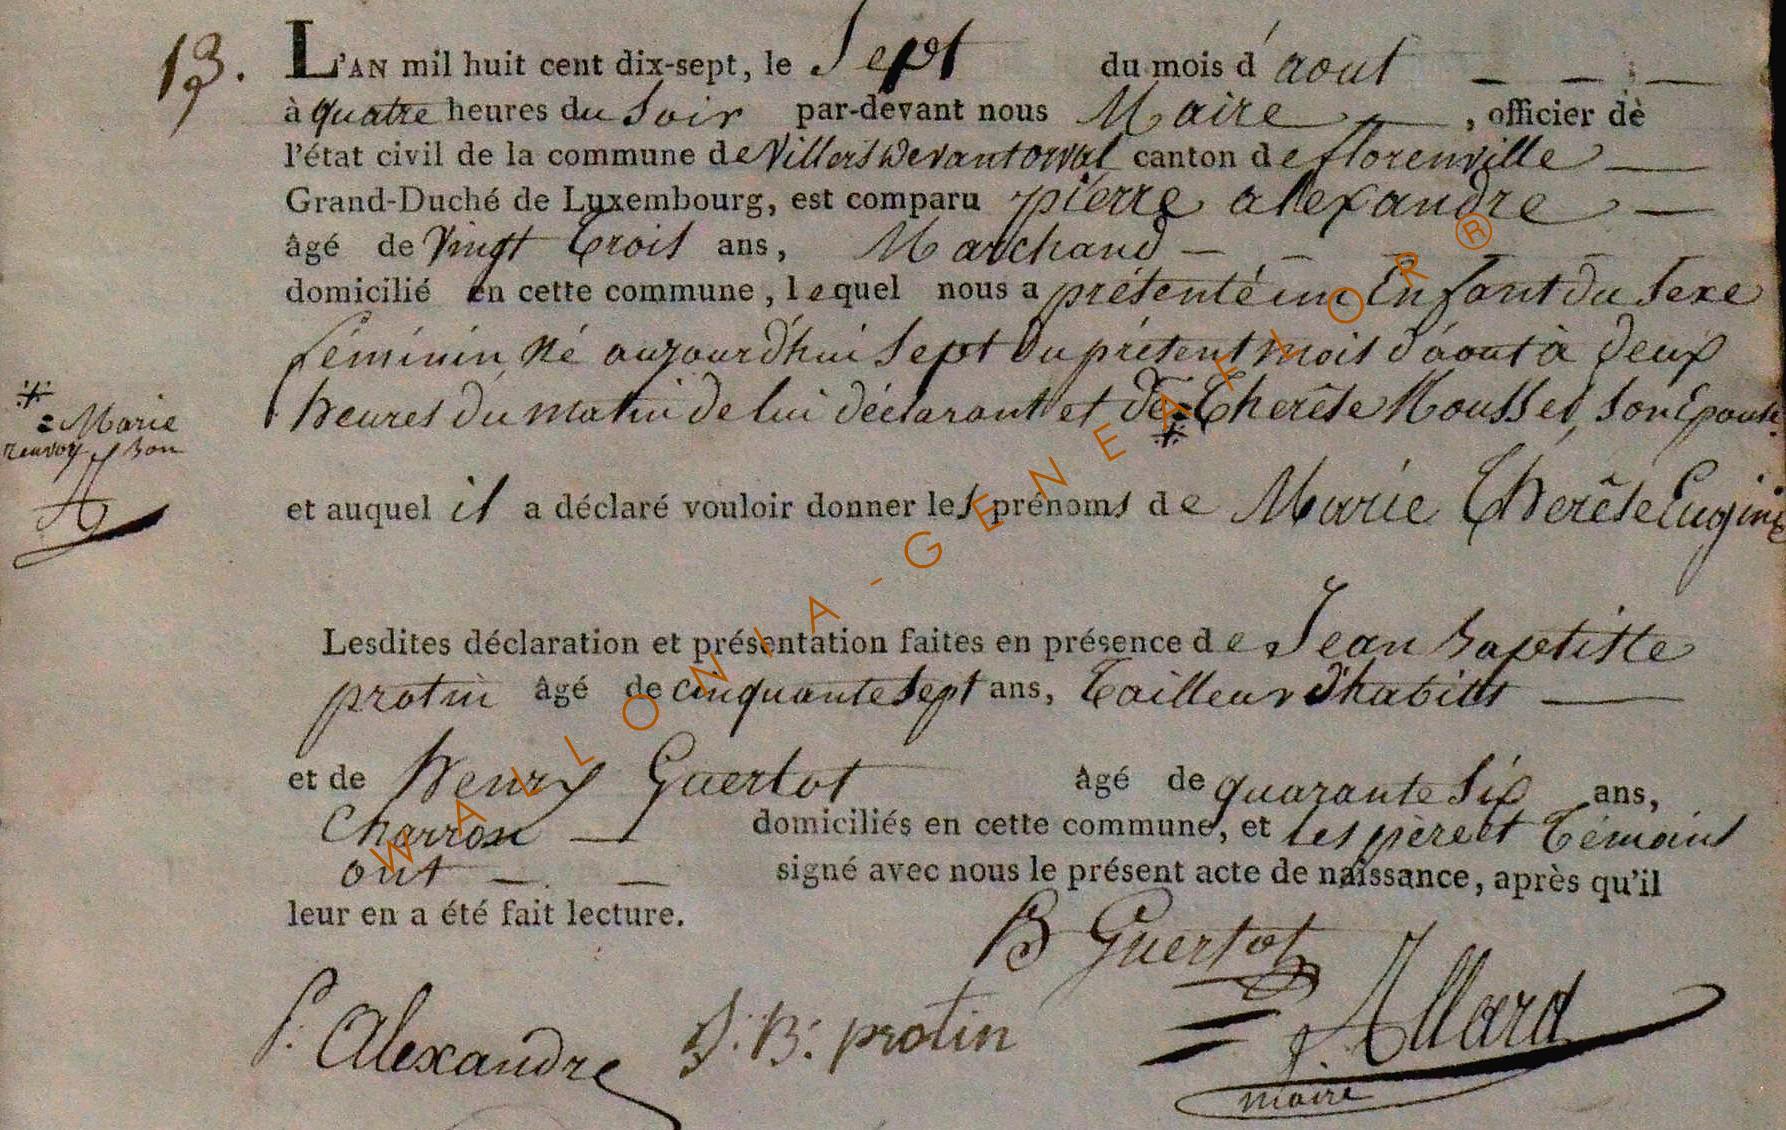 13.
L'AN mil huit cent dix-sept, le Sept du mois d'aout
à quatre heures du Soir par-devant nous Maire, officier de
l'état civil de la commune de Villers devant orval canton de florenville
Grand-Duché de Luxembourg, est comparu pierre alexandre
âgé de Vingt trois ans, Marchand
domicilié en cette commune, lequel nous a présenté un Enfant du Sexe
féminin, né aujourd'hui Sept du présent mois d'aout à deux
heures du matin de lui déclarant et de Therêse Mousset, Son Epouse.
*
* = Marie
renvoy bon
et auquel il a déclaré vouloir donner les prénoms de Marie Therêse Eugine
Lesdites déclaration et présentation faites en présence de Jean baptiste
protin âgé de cinquante Sept ans, Tailleur d'habits
et de Henry Guertot âgé de quarante Six ans,
Charron domiciliés en cette commune, et les père et Témoins
ont signé avec nous le présent acte de naissance, après qu'il
leur en a été fait lecture.
Guertot
P. Alexandre J: B: protin Allard
maire
WALLONIA-GENEAFLOR®